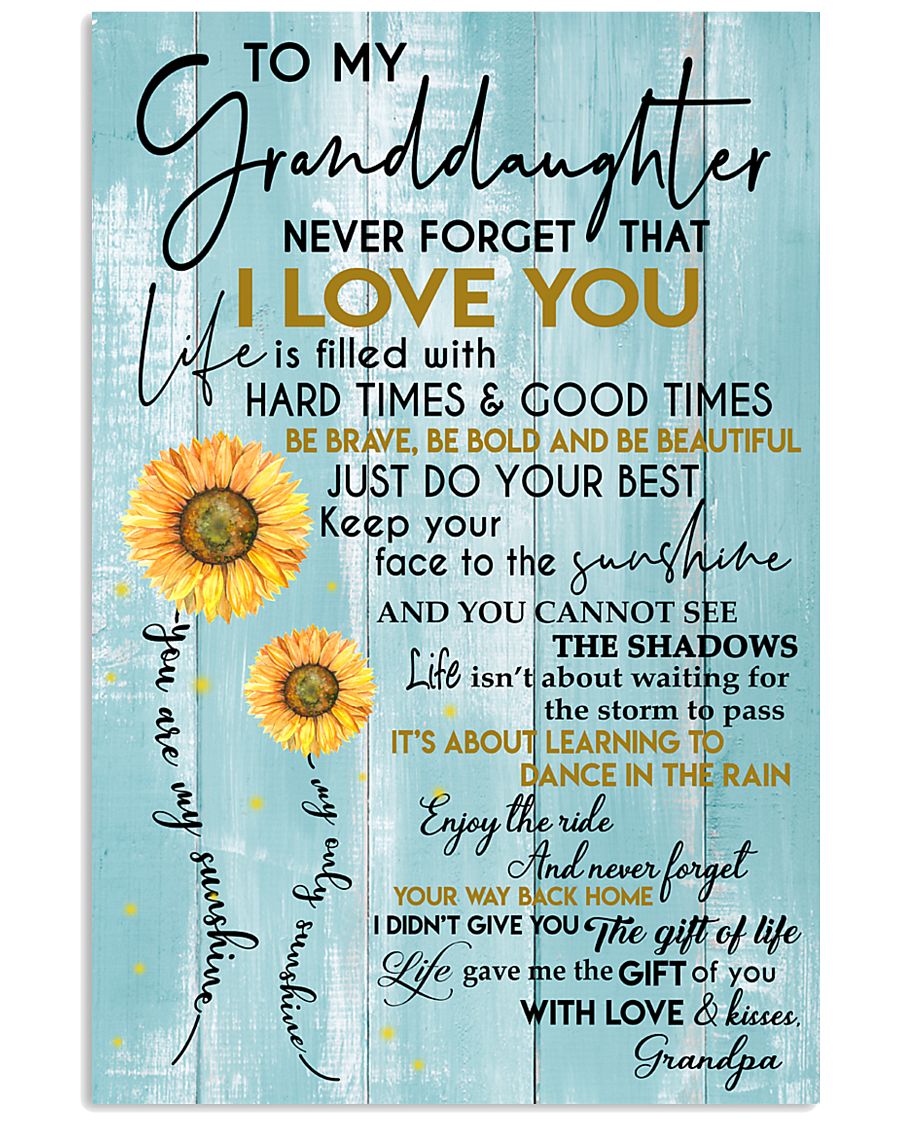 TO MY
Granddaughter
NEVER FORGET THAT
I LOVE YOU
Life is filled with
HARD TIMES & GOOD TIMES
BE BRAVE, BE BOLD AND BE BEAUTIFUL
JUST DO YOUR BEST
Keep your
face to the sunshine
AND YOU CANNOT SEE
THE SHADOWS
Life isn't about waiting for
the storm to pass
IT'S ABOUT LEARNING TO
DANCE IN THE RAIN
Enjoy the ride
And never forget
YOUR WAY BACK HOME
I DIDN'T GIVE YOU The gift of life
Life gave me the GIFT of you
WITH LOVE & kisses,
Grandpa
you are my sunshine
my only sunshine